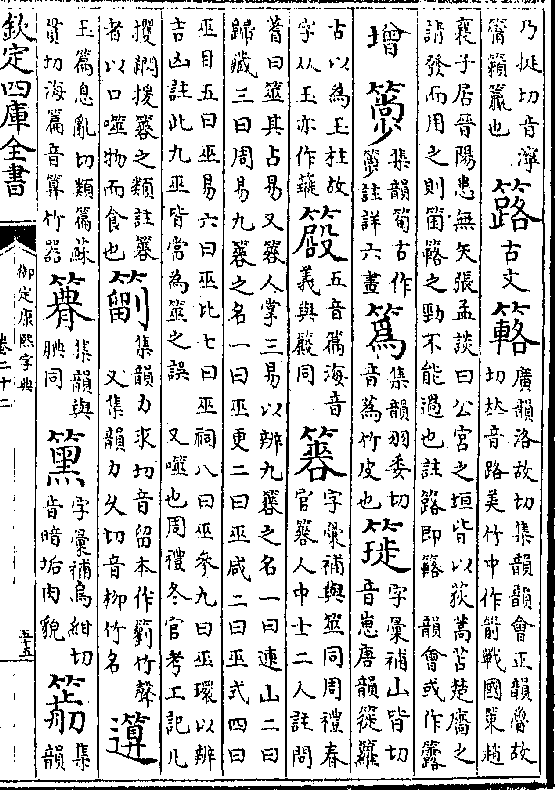 乃挺切音濘
簹籟籯也
簬
古文
簵
廣韻洛故切集韻韻會正韻魯故
切𠀤音路美竹中作箭戰國策趙
襄子居晉陽患無矢張孟談曰公宮之垣皆以荻蒿苫楚廧之
請發而用之則箘簬之勁不能過也註簬即簵 韻會或作
增
集韻筍古作
註詳六畫
集韻羽委切
音蒍竹皮也
簁
字彙補山皆切
音崽唐韻簁籮
古以為玉柱故
字从玉亦作
五音篇海音
義與嚴同
簭
字彙補與筮同周禮春
官簭人中士二人註問
蓍曰筮其占易又簭人掌三易以辨九簭之名一曰連山二曰
歸藏三曰周易九簭之名一曰巫更二曰巫咸三曰巫式四曰
巫目五曰巫易六曰巫比七曰巫祠八曰巫參九曰巫環以辨
吉凶註此九巫皆當為筮之誤 又噬也周禮冬官考工記凡
攫閷援簭之類註簭
者以口噬物而食也
集韻力求切音留本作籀竹聲
又集韻力久切音柳竹名
玉篇息亂切類篇蘇
貫切海篇音算竹器
集韻與
同
字彙補烏紺切
音暗垢肉貌
集
韻
欽定四庫全書
御定康熙字典
卷二十二
五五